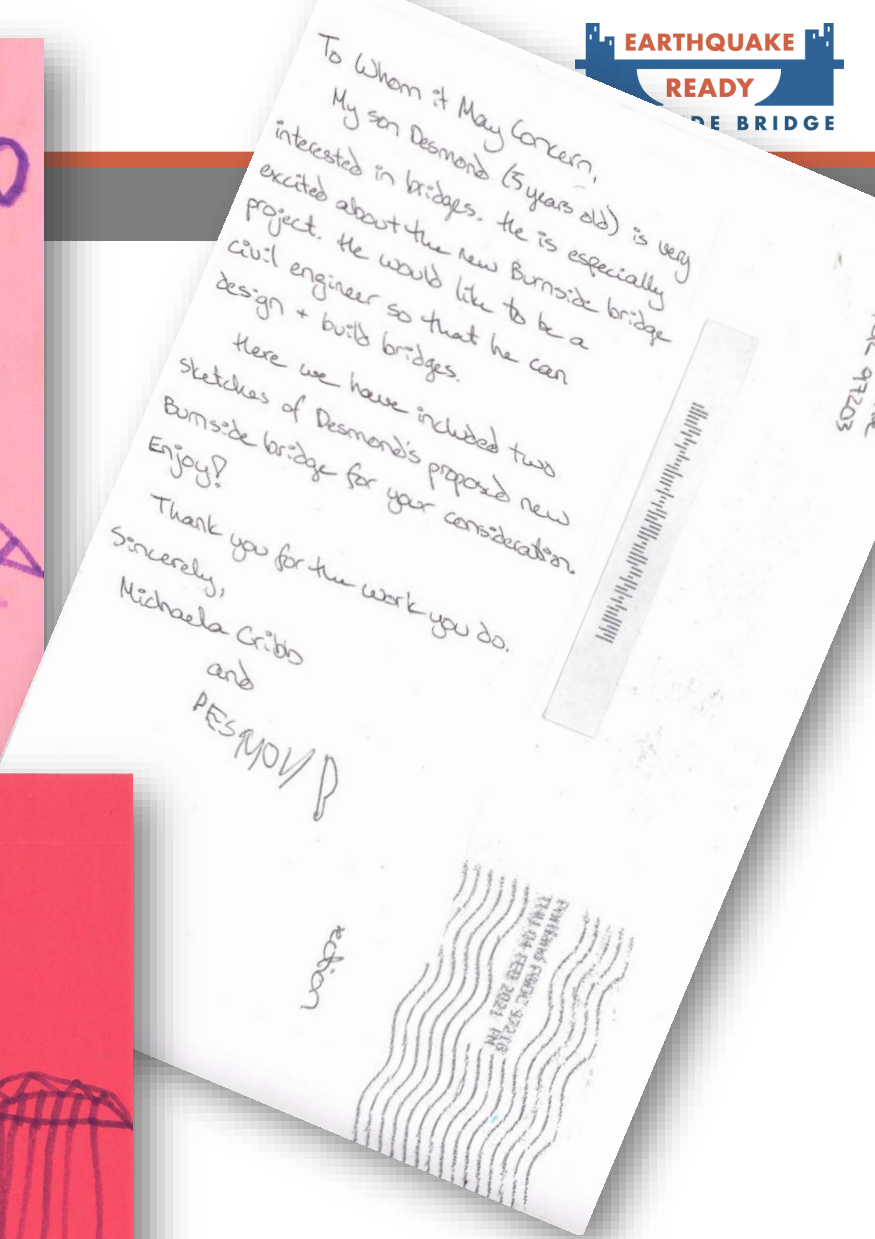 EARTHQUAKE
READY
DE BRIDGE
To Whom it May Concern,
My son Desmond (5 years old) is very
interested in bridges. He is especially
excited about the new Burnside bridge
project. He would like to be a
civil engineer so that he can
design + build bridges.
Here we have included two
sketches of Desmond's proposed new
Burnside bridge for your consideration.
Enjoy!
Thank you for the work you do.
Sincerely,
Michaela Cribb
and
DESMOND
97203
97218
THU 04 FEB 2021 PM